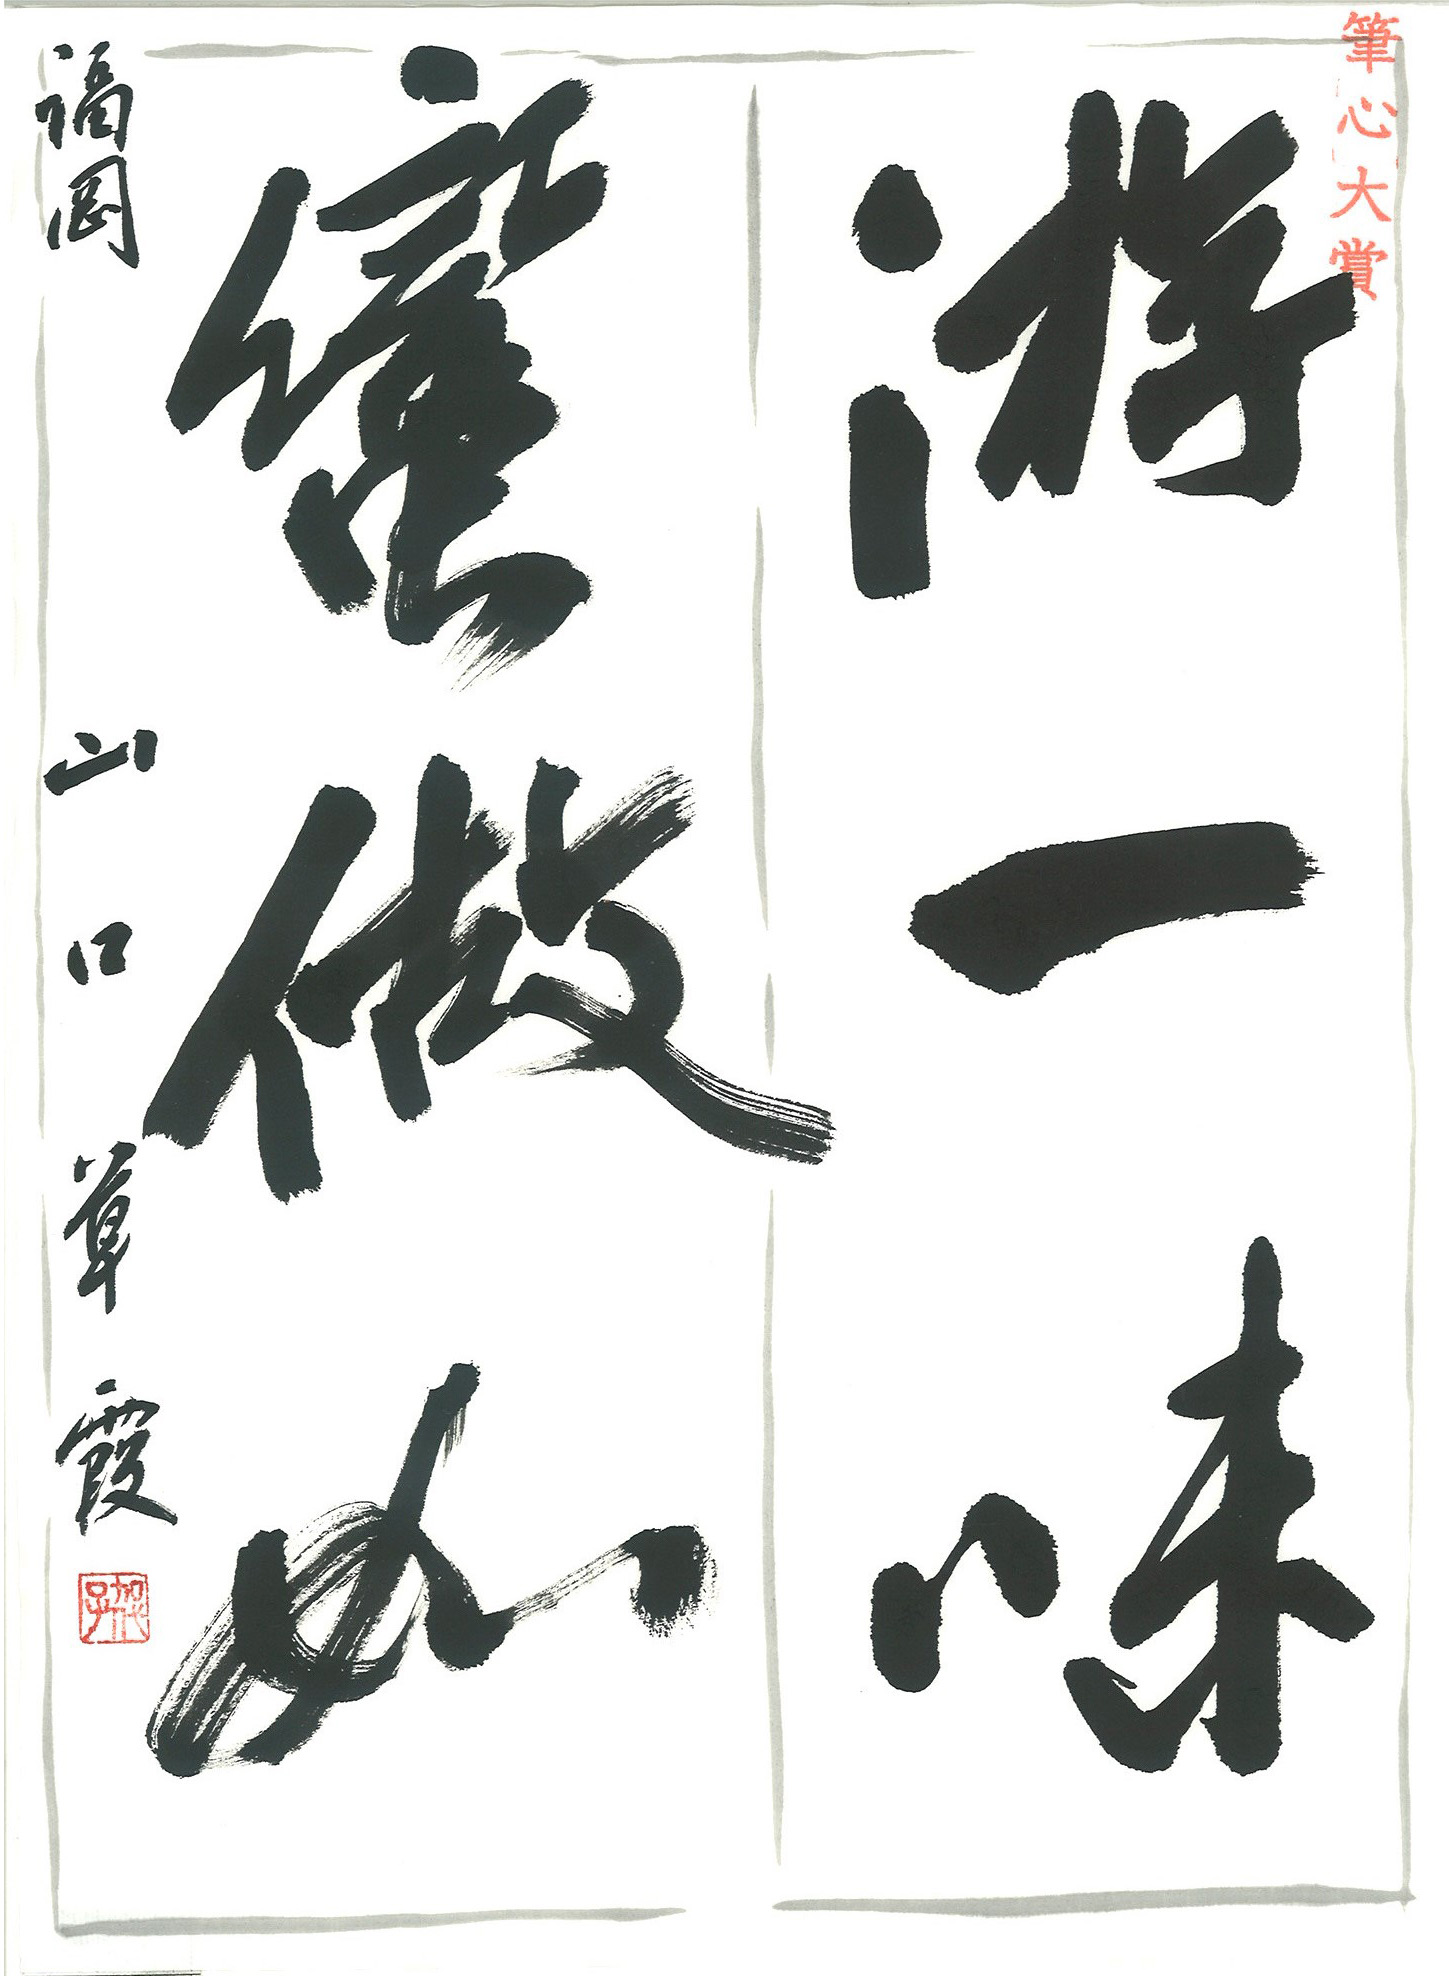 筆心大賞
游一味
做如
福岡 山口 草霞